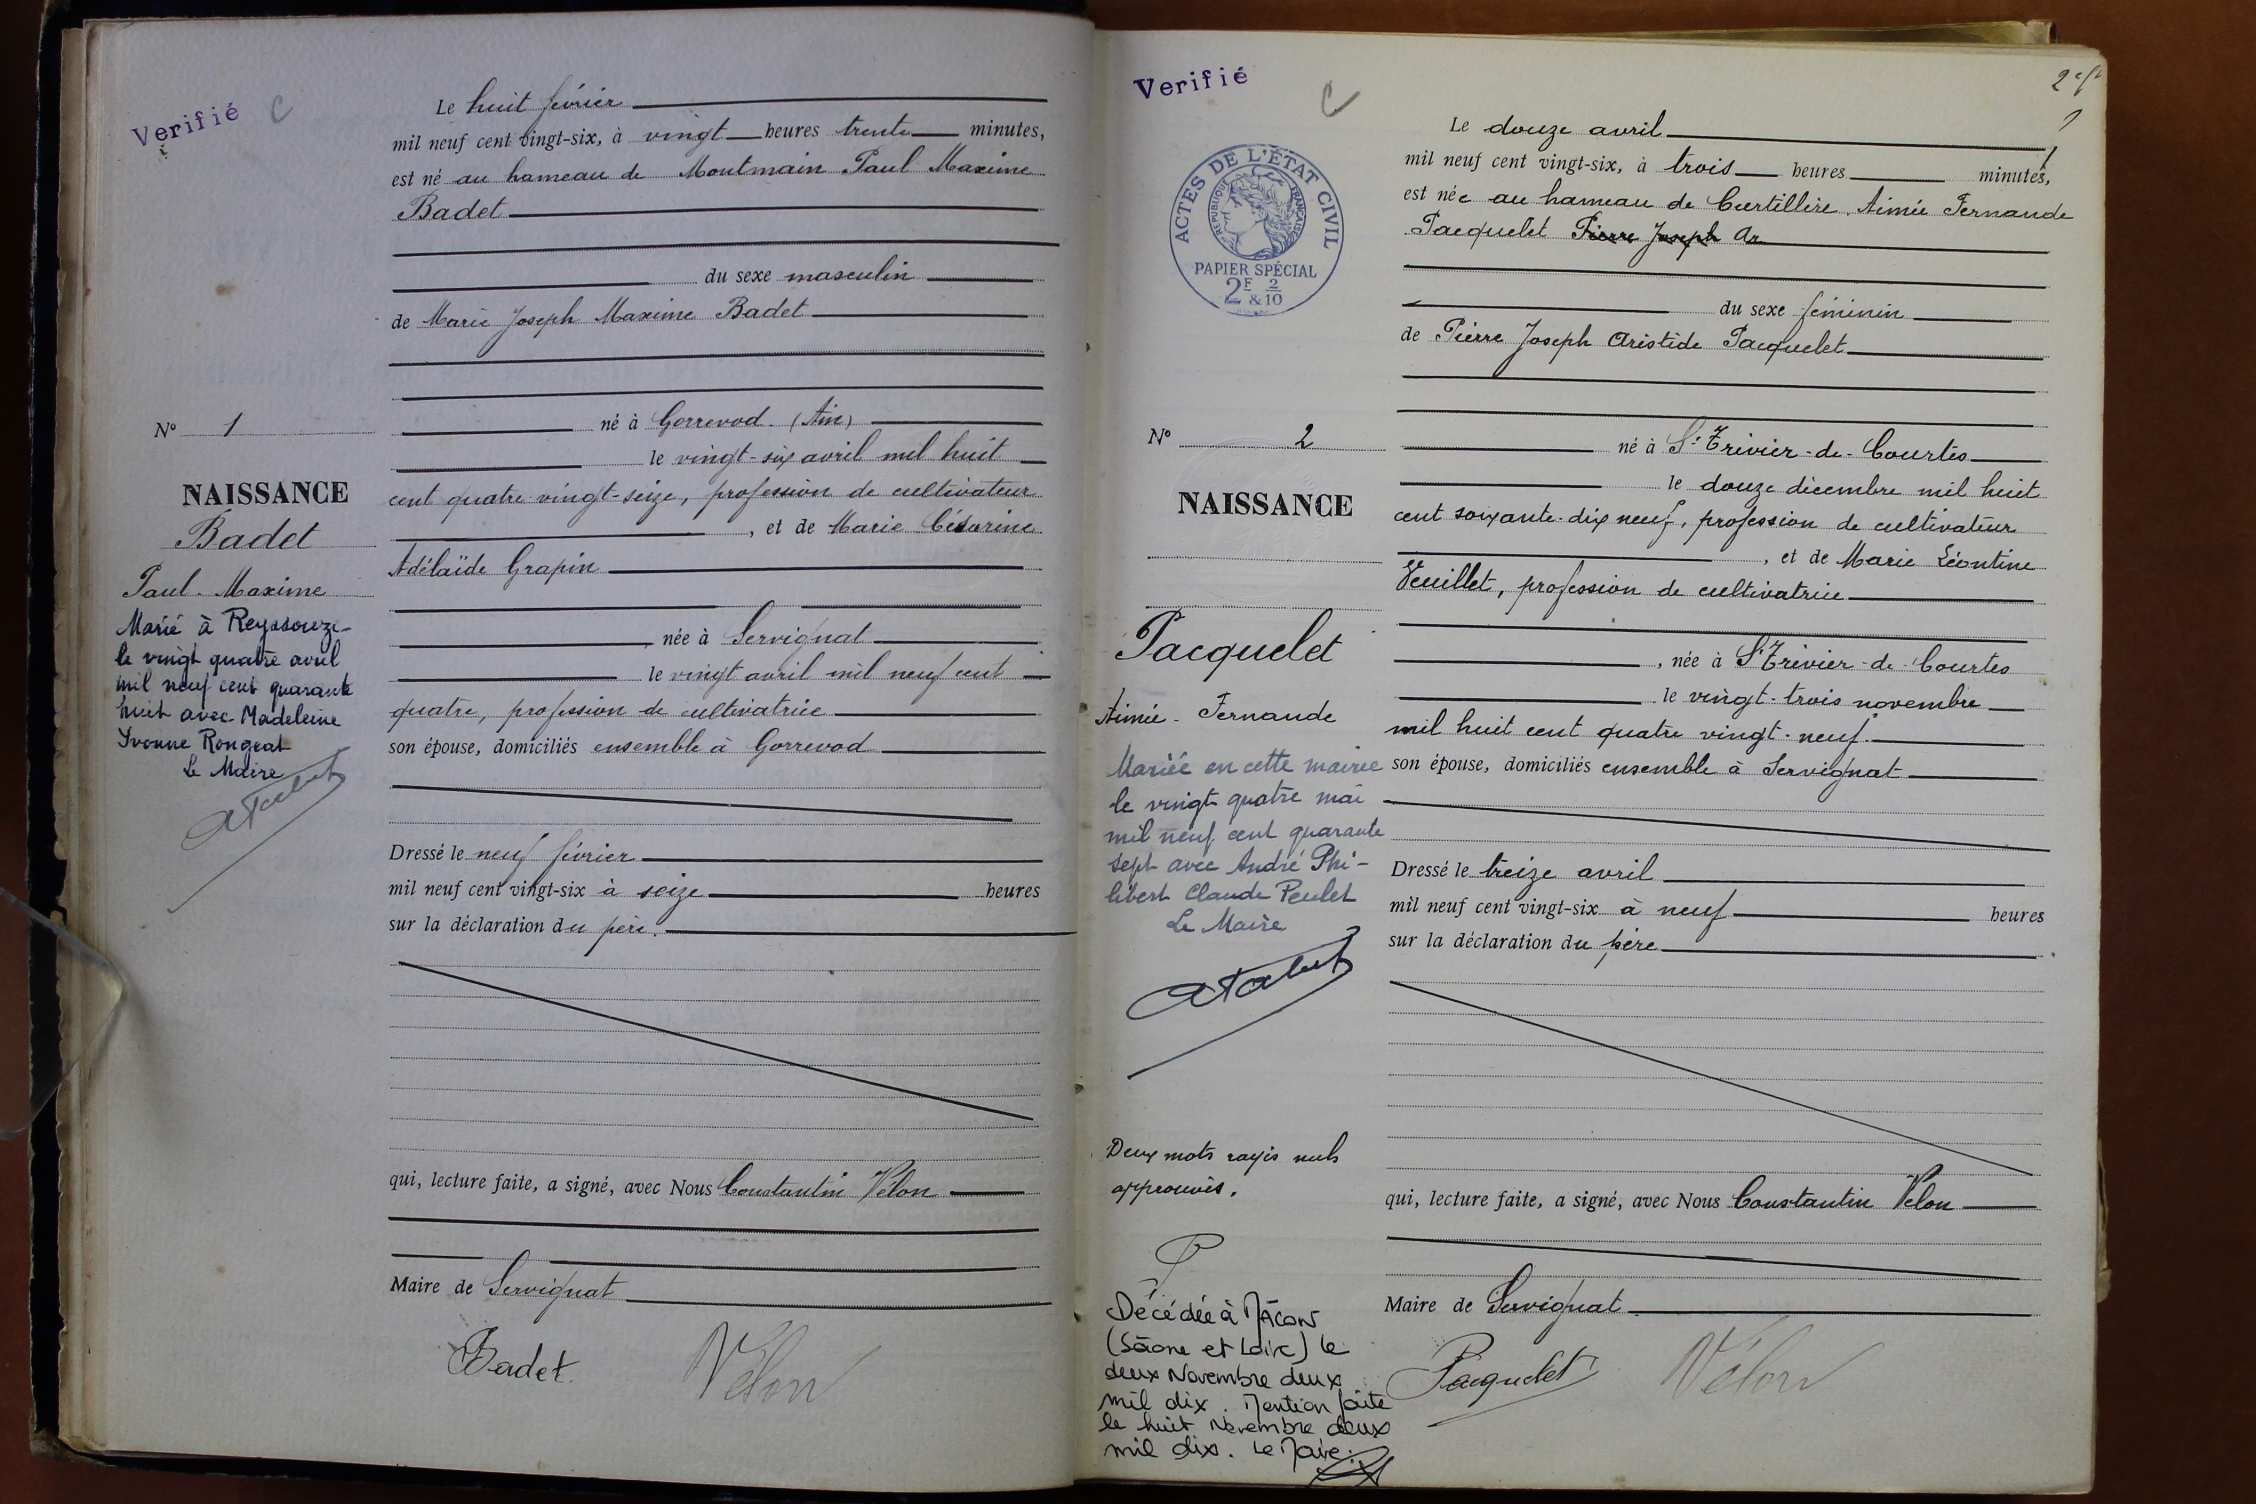 Verifié
C
Le huit février
mil neuf cent vingt-six, à vingt heures trente minutes,
est né au hameau de Montmain Paul Maxime
Badet
du sexe masculin
de Marie Joseph Maxime Badet
né à Gorrevod (Ain)
le vingt-six avril mil huit
cent quatre-vingt-seize, profession de cultivateur
, et de Marie Césarine
Adélaïde Grapin
née à Servignat
le vingt avril mil neuf cent
quatre, profession de cultivatrice
son épouse, domiciliés ensemble à Gorrevod
Dressé le neuf février
mil neuf cent vingt-six à seize heures
sur la déclaration du père.
qui, lecture faite, a signé, avec Nous Constantin Vélon
Maire de Servignat
Badet
Vélon
N° 1
NAISSANCE
Badet
Paul-Maxime
Marié à Reyssouze
le vingt quatre avril
mil neuf cent quarante
huit avec Madeleine
Yvonne Rongeat
Le Maire
Verifié
C
ACTES DE L'ÉTAT CIVIL
RÉPUBLIQUE FRANÇAISE
PAPIER SPÉCIAL
2F 2
& 10
Le douze avril
mil neuf cent vingt-six, à trois heures minutes,
est née au hameau de Curtillère Aimée Fernande
Pacquelet Pierre Joseph Ar
du sexe féminin
de Pierre Joseph Aristide Pacquelet
né à St Trivier-de-Courtes
le douze décembre mil huit
cent soixante-dix neuf, profession de cultivateur
, et de Marie Léontine
Veuillet, profession de cultivatrice
, née à St Trivier-de-Courtes
le vingt-trois novembre
mil huit cent quatre vingt-neuf
son épouse, domiciliés ensemble à Servignat
Dressé le treize avril
mil neuf cent vingt-six à neuf heures
sur la déclaration du père
qui, lecture faite, a signé, avec Nous Constantin Vélon
Maire de Servignat
Pacquelet
Vélon
N° 2
NAISSANCE
Pacquelet
Aimée-Fernande
Mariée en cette mairie
le vingt quatre mai
mil neuf cent quarante
sept avec André Phi-
libert Claude Peulet
Le Maire
Deux mots rayés nuls
approuvés.
Décédée à Mâcon
(Saône et Loire) le
deux Novembre deux
mil dix. Mention faite
le huit Novembre deux
mil dix. Le Maire.